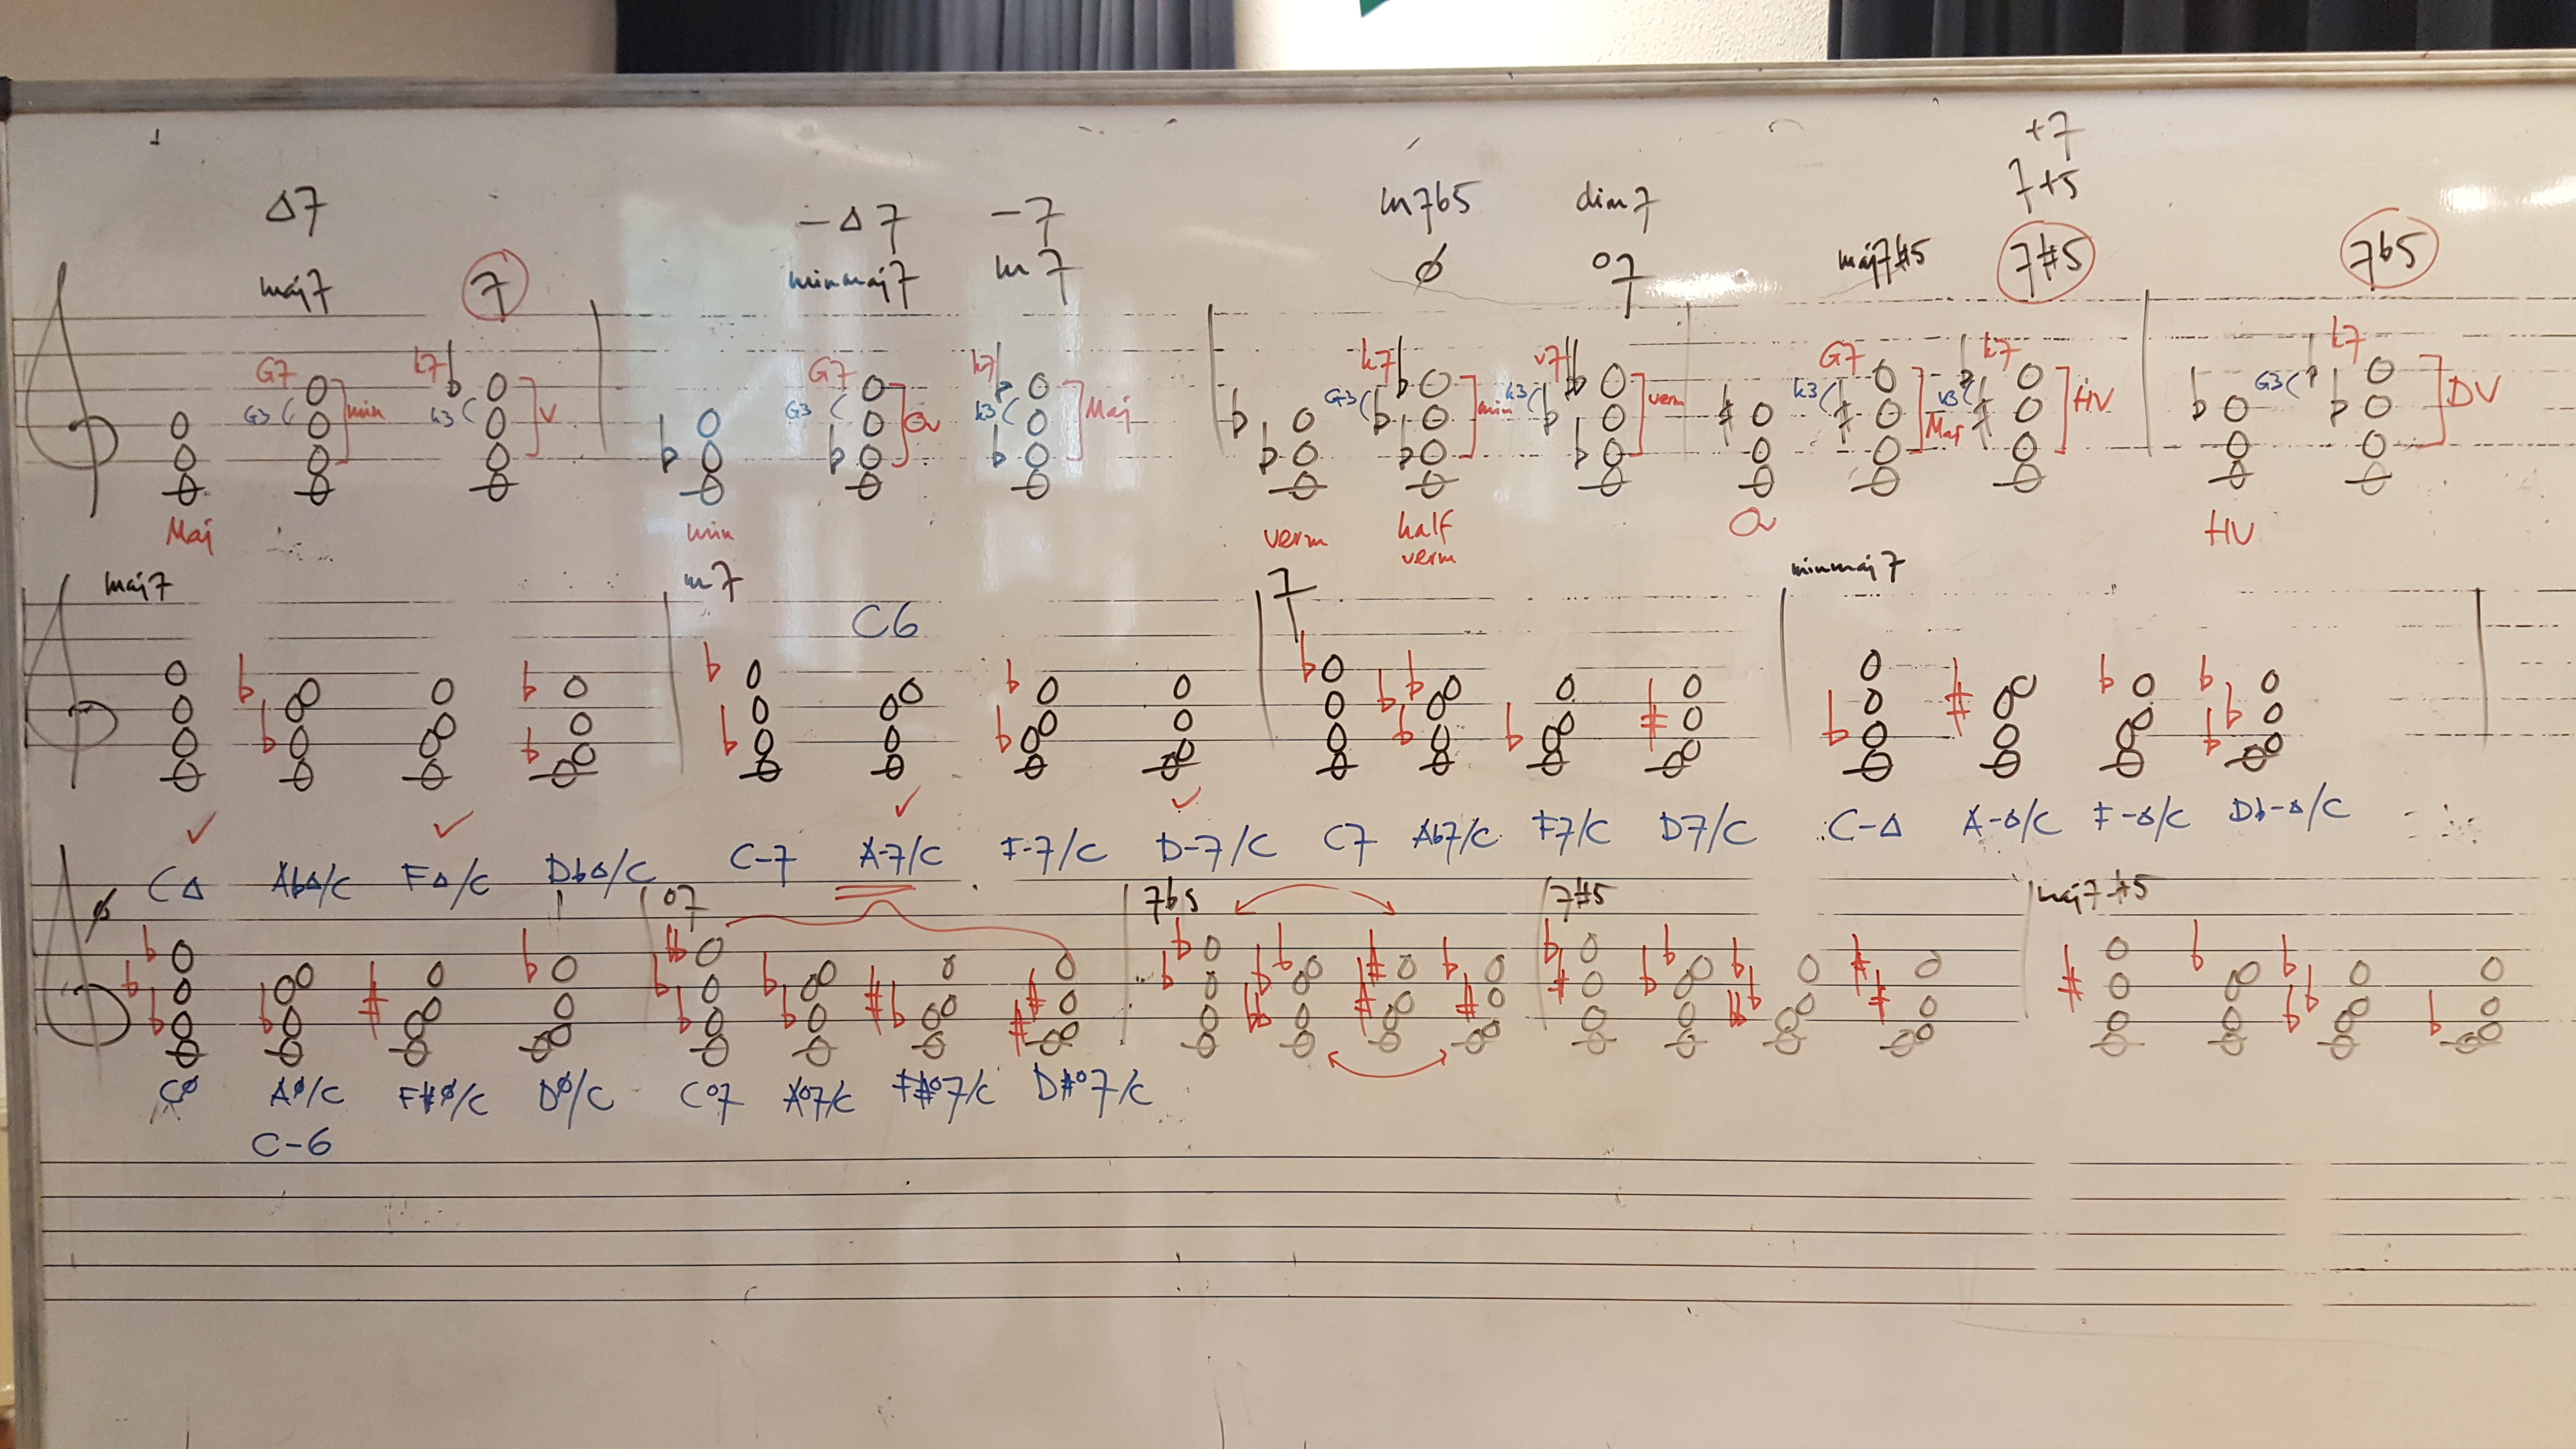 +7
7+5
Δ7 -Δ7 -7 m7b5 dim7
maj7 7 minmaj7 m7 ø o7 maj7#5 7#5 7b5
G7 k7 G7 k7 k7 v7 G7 k7 k7
G3 min k3 V G3 Ov k3 Maj G3 min k3 verm k3 Maj k3 HV G3 DV
Maj min verm half verm Ov HV
maj7 m7 7 minmaj7
C6
CΔ AbΔ/C FΔ/C DbΔ/C C-7 A-7/C F-7/C D-7/C C7 Ab7/C F7/C D7/C C-Δ A-Δ/C F-Δ/C Db-Δ/C
ø o7 7b5 7#5 maj7#5
Cø Aø/C F#ø/C Dø/C Co7 Ao7/C F#o7/C D#o7/C
C-6